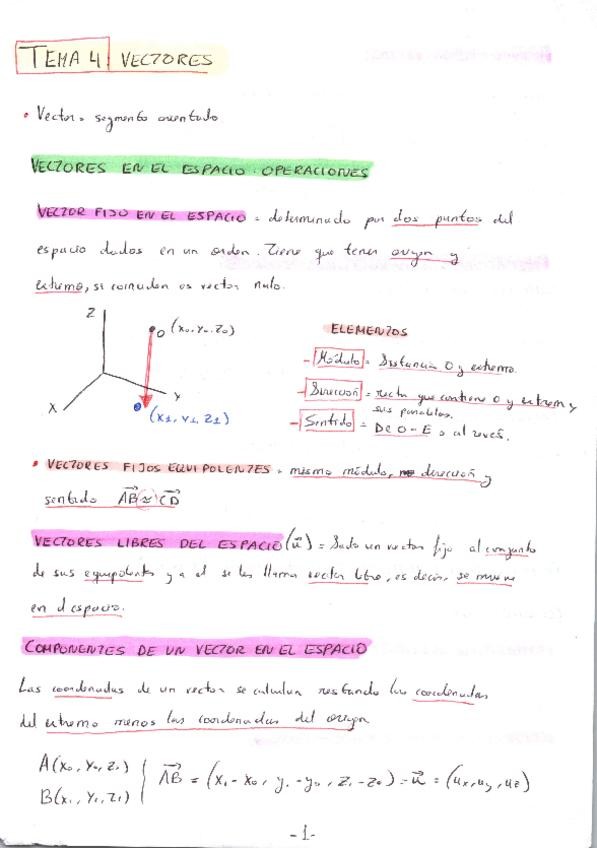 TEMA 4 VECTORES
• Vector = segmento orientado
VECTORES EN EL ESPACIO: OPERACIONES
VECTOR FIJO EN EL ESPACIO = determinado por dos puntos del
espacio dados en un orden. Tiene que tener origen y
extremo, si coinciden es vector nulo.
Z
O (x₀, y₀, z₀)
X
Y
(x1, y1, z1)
ELEMENTOS
- Módulo = Distancia O y extremo.
- Dirección = recta que contiene O y extrem y
sus paralelas.
- Sentido = De O-E o al revés.
• VECTORES FIJOS EQUIPOLENTES = mismo módulo, dirección y
sentido AB⃗ ≈ CD⃗
VECTORES LIBRES DEL ESPACIO (u⃗) = Dado un vector fijo al conjunto
de sus equipolentes y a él se les llama vector libre, es decir, se mueve
en el espacio.
COMPONENTES DE UN VECTOR EN EL ESPACIO
Las coordenadas de un vector se calculan restando las coordenadas
del extremo menos las coordenadas del origen
A(x₀, y₀, z₀)
B(x₁, y₁, z₁)
AB⃗ = (x₁ - x₀, y₁ - y₀, z₁ - z₀) = u⃗ = (ux, uy, uz)
-1-